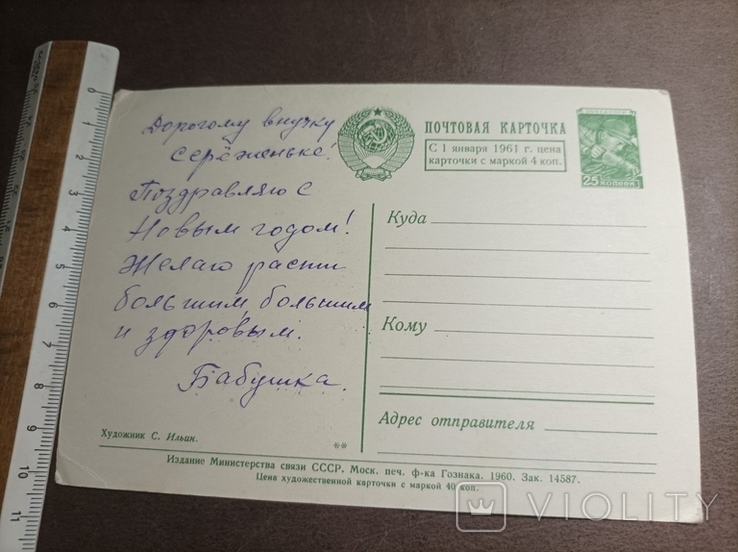 Дорогому внучку
Серёженьке!
Поздравляю с
Новым годом!
Желаю расти
большим, большим
и здоровым.
Бабушка.
Художник С. Ильин.
**
ПОЧТОВАЯ КАРТОЧКА
С 1 января 1961 г. цена
карточки с маркой 4 коп.
25 КОПЕЕК
Куда
Кому
Адрес отправителя
Издание Министерства связи СССР. Моск. печ. ф-ка Гознака. 1960. Зак. 14587.
Цена художественной карточки с маркой 40 коп.
0 1 2 3 4 5 6 7 8 9 10 11
VIOLITY